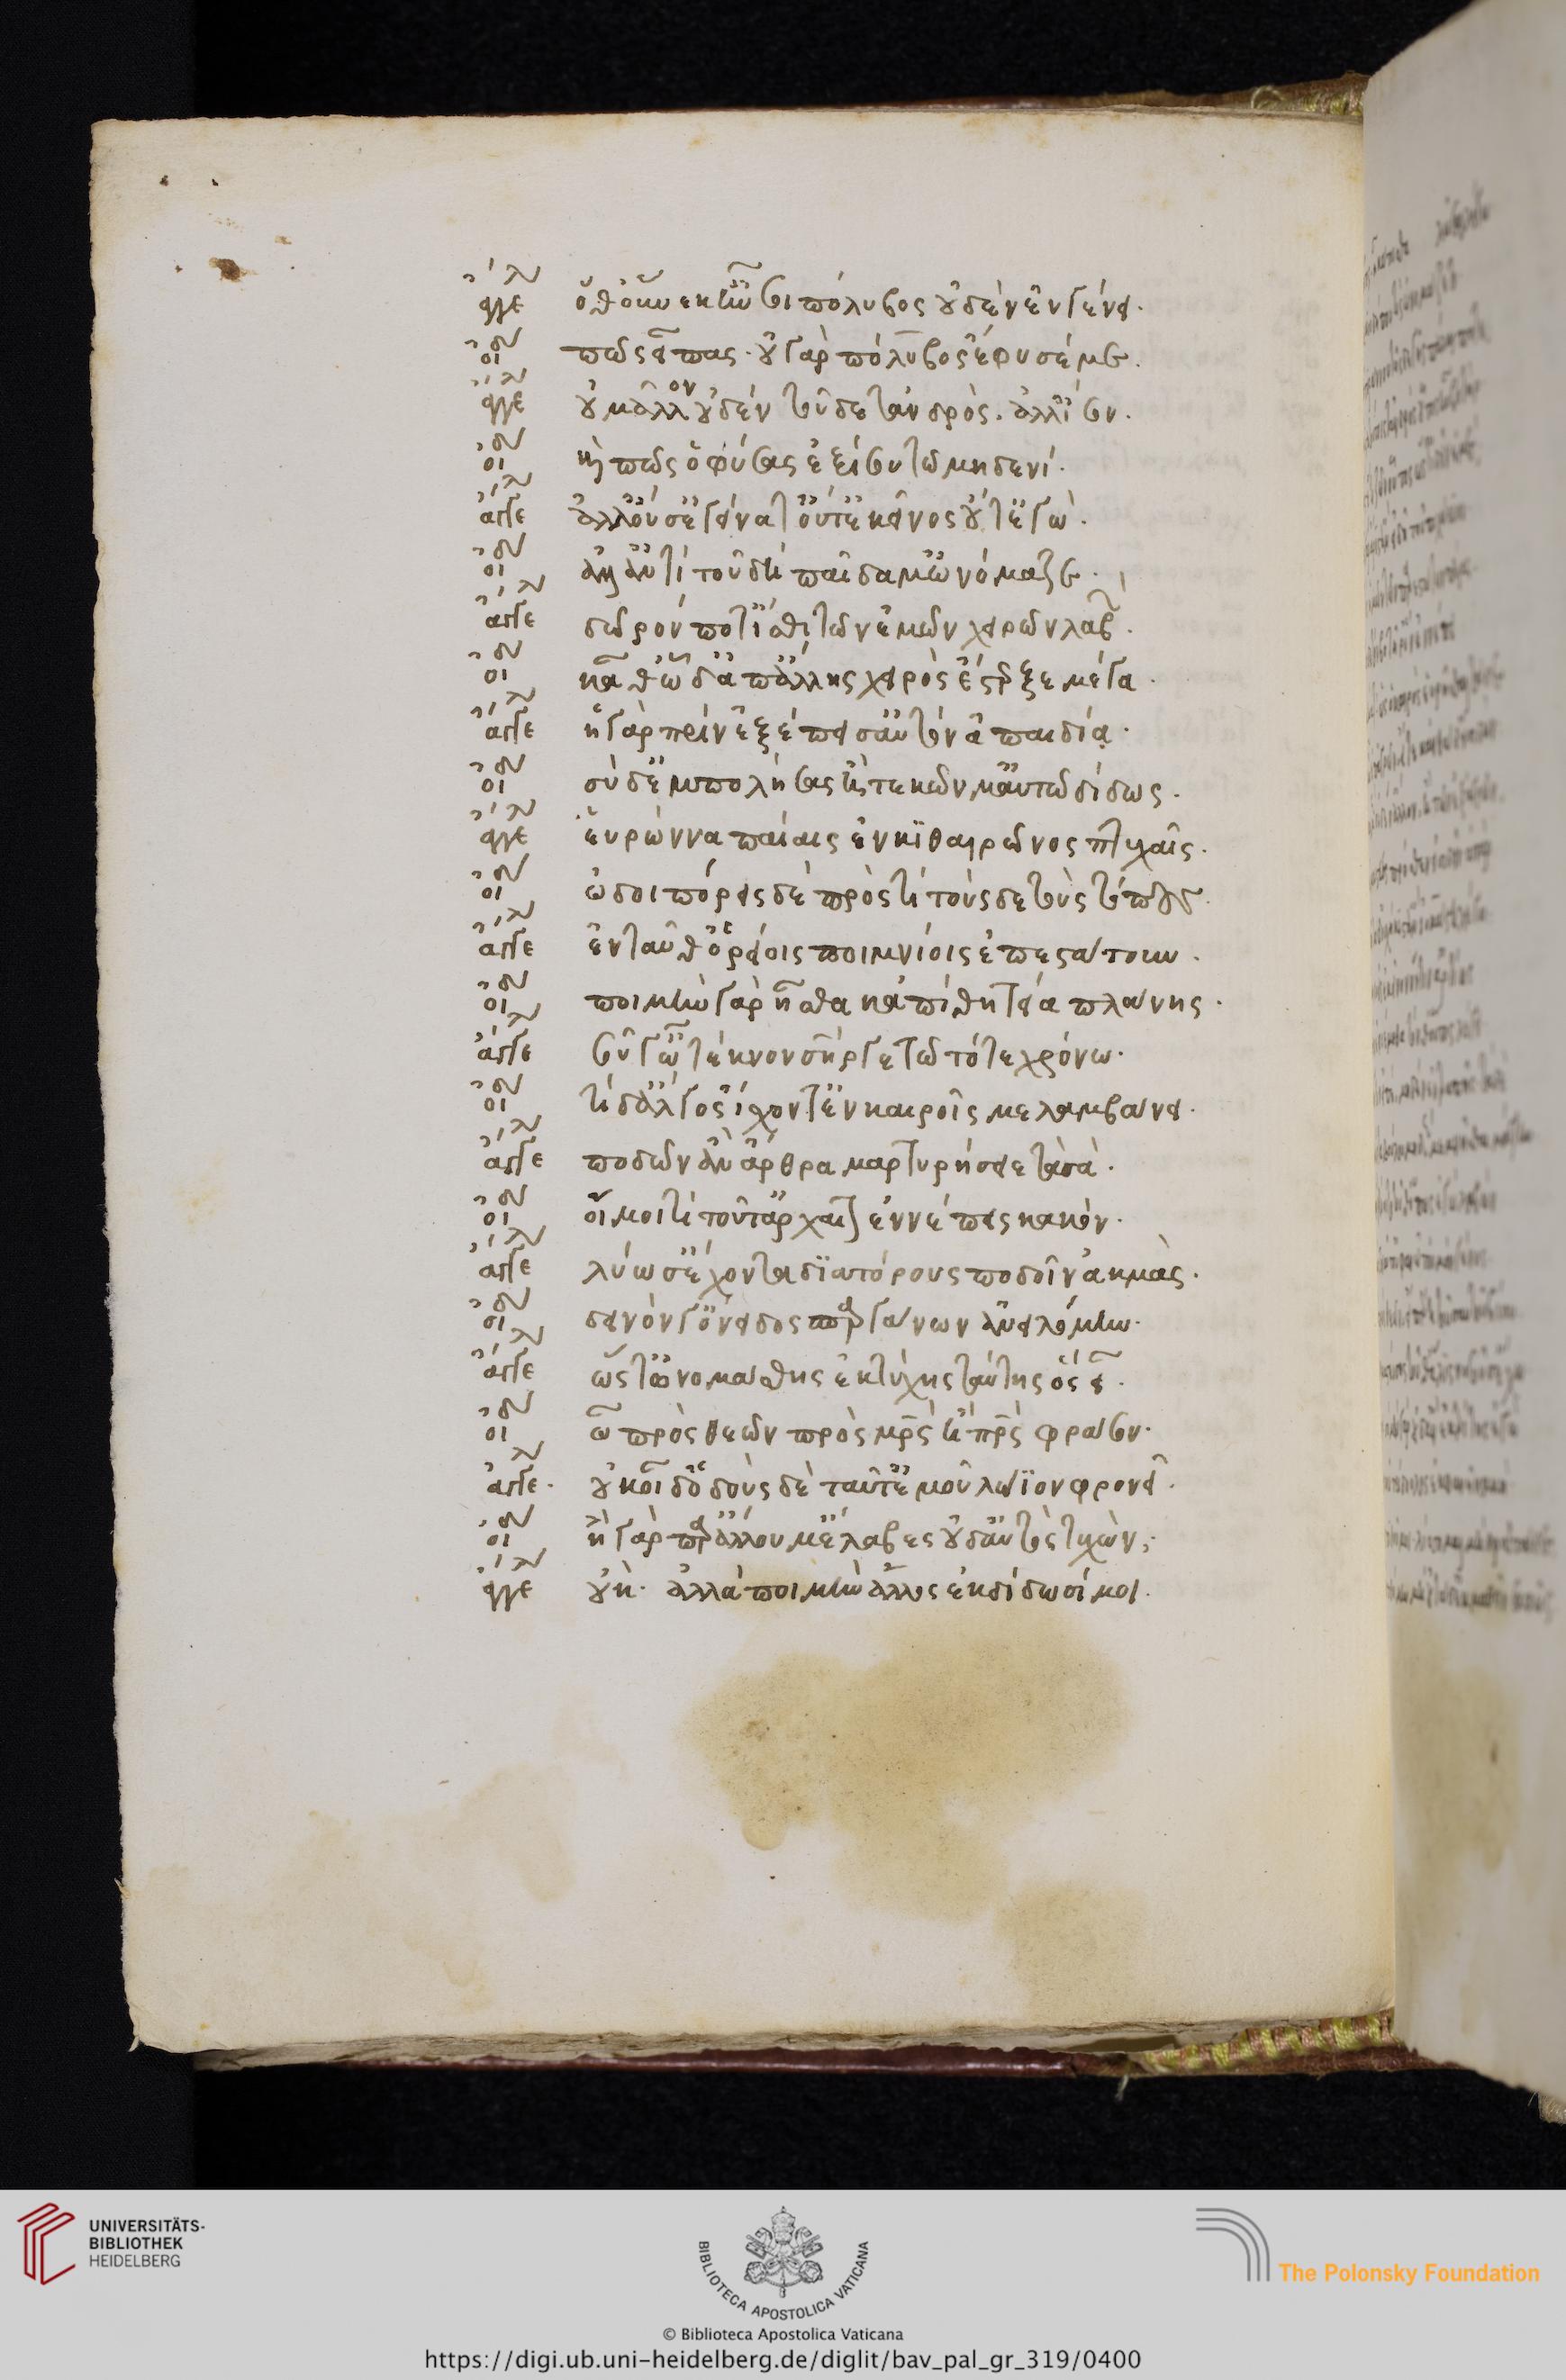 ἄγγε ὅθ' οὖν ἐκ ἦν σοι πόλυβος οὐδὲν ἐν γένει.
οιδ πῶς εἶπας. οὐ γὰρ πόλυβος ἔφυσέ με.
ἄγγε οὐ μᾶλλον οὐδὲν τοῦδε τἀνδρός. ἀλλ' ἴσον.
οιδ καὶ πῶς ὁ φύσας ἐξίσου τῶ μηδενί.
ἄγγε ἀλλ' οὔ σ' ἐγείνατ' οὔτ' ἐκεῖνος οὔτ' ἐγώ.
οιδ ἀλλ' ἀντὶ τοῦ δὴ παῖδα μ' ὠνόμαζε.
ἄγγε δῶρόν ποτ' ἴσθι τῶν ἐμῶν χειρῶν λαβ.
οιδ κᾆθ' ὧδ' ἀπ' ἄλλης χειρὸς ἔστερξε μέγα.
ἄγγε ἡ γὰρ πρὶν ἐξέπεισ' αὐτὸν ἀπαιδία.
οιδ σὺ δ' ἐμπολήσας ἢ τεκών μ' αὐτῶ δίδως.
ἄγγε εὑρὼν ναπαίαις ἐν κιθαιρῶνος πτυχαῖς.
οιδ ὡδοιπόρεις δὲ πρὸς τί τούσδε τοὺς τόπους.
ἄγγε ἐνταῦθ' ὀρείοις ποιμνίοις ἐπεστάτουν.
οιδ ποιμὴν γὰρ ἦσθα κἀπὶ θητεία πλάνης.
ἄγγε σοῦ γ' ὦ τέκνον σῆρ γε τῶ τότε χρόνω.
οιδ τί δ' ἄλγος ἴσχοντ' ἐν καιροῖς με λαμβάνει.
ἄγγε ποδῶν ἂν ἄρθρα μαρτυρήσειε τὰ σά.
οιδ οἴμοι τί τοῦτ' ἀρχαῖον ἐννέπεις κακόν.
ἄγγε λύω σ' ἔχοντα διατόρους ποδοῖν ἀκμάς.
οιδ δεινόν γ' ὄνειδος σπαργάνων ἀνειλόμην.
ἄγγε ὥστ' ὠνομάσθης ἐκ τύχης ταύτης ὃς εἶ.
οιδ ὦ πρὸς θεῶν πρὸς μρς ἢ πρς φράσον.
ἄγγε. οὐκ οἶδ' ὁ δοὺς δὲ ταῦτ' ἐμοῦ λώϊον φρονεῖ.
οιδ ἢ γὰρ παρ' ἄλλου μ' ἔλαβες οὐδ' αὐτὸς τυχών;
ἄγγε οὐκ. ἀλλὰ ποιμὴν ἄλλος ἐκδίδωσί μοι.
UNIVERSITÄTS-
BIBLIOTHEK
HEIDELBERG
BIBLIOTECA APOSTOLICA VATICANA
The Polonsky Foundation
© Biblioteca Apostolica Vaticana
https://digi.ub.uni-heidelberg.de/diglit/bav_pal_gr_319/0400